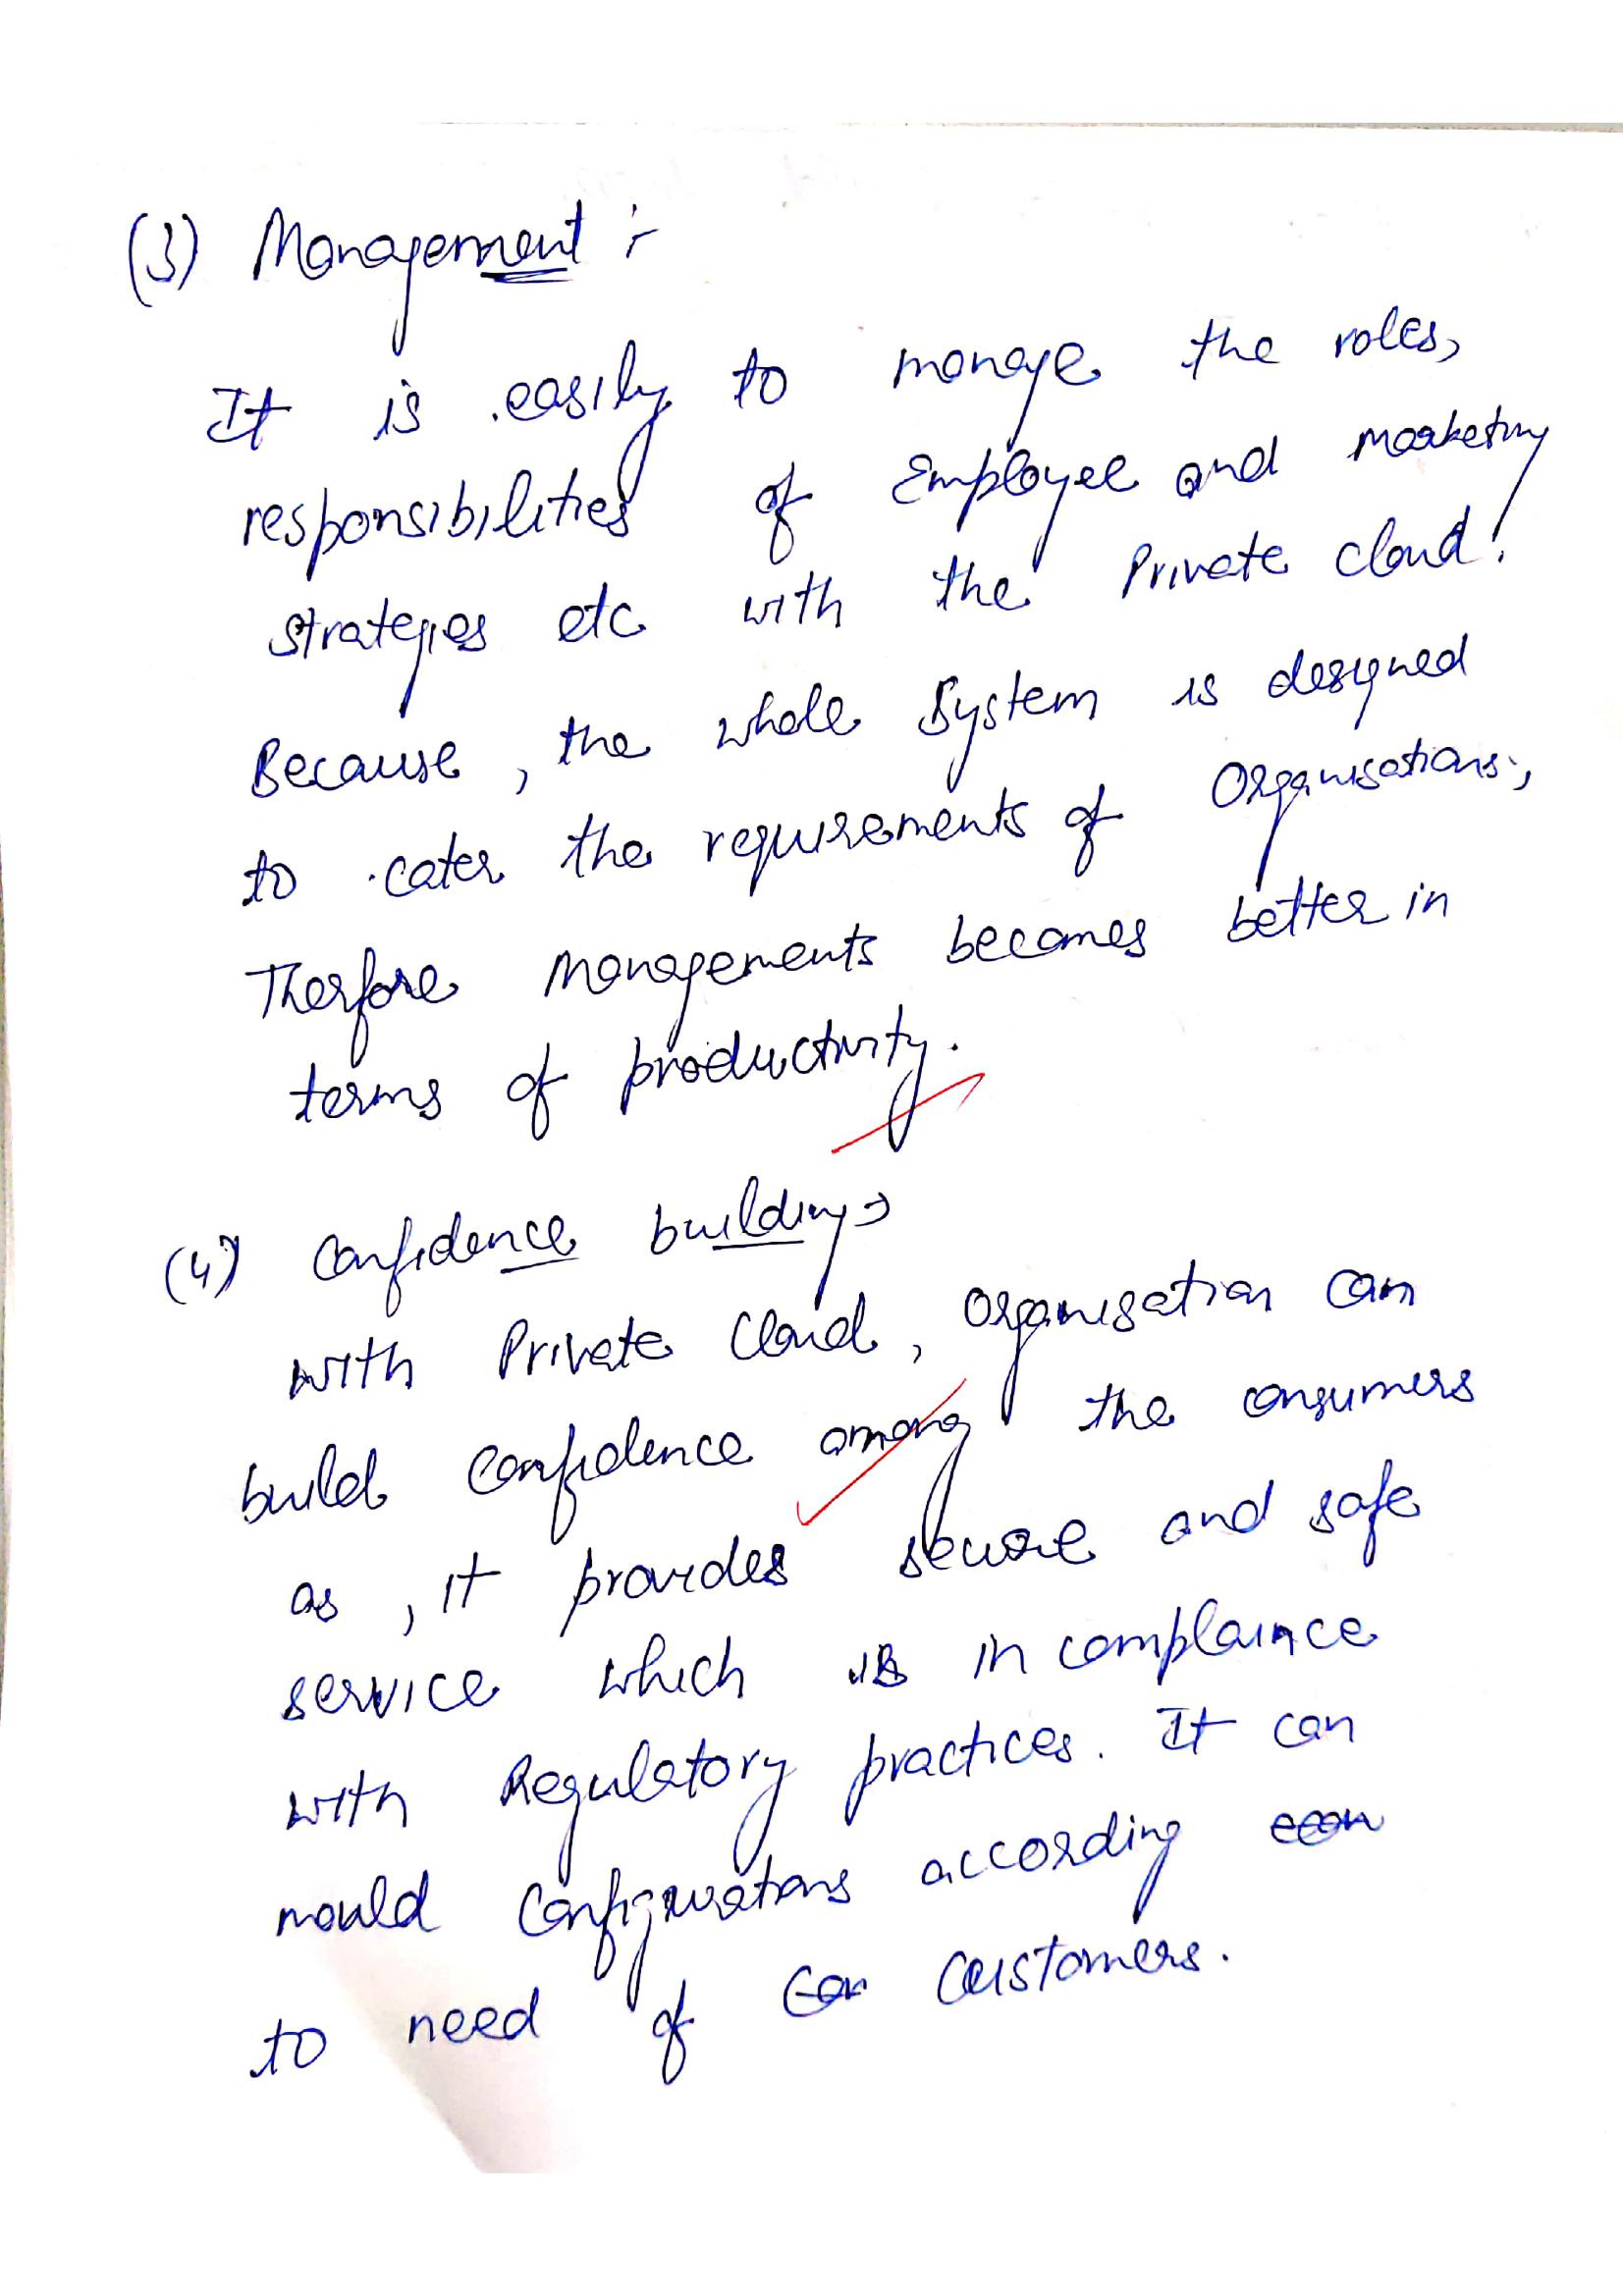 (3) Management :-
It is easily to manage the roles,
responsibilities of Employee and marketing
strategies etc with the Private cloud.
Because, the whole System is designed
to cater the requirements of Organisations,
Therfore Managements becomes better in
terms of productivity.
(4) Confidence building →
with Private Cloud, Organisation can
build Confidence among the consumers
as, it provides secure and safe
service which is in complaince
with Regulatory practices. It can
mould Configurations according
to need of Customers.